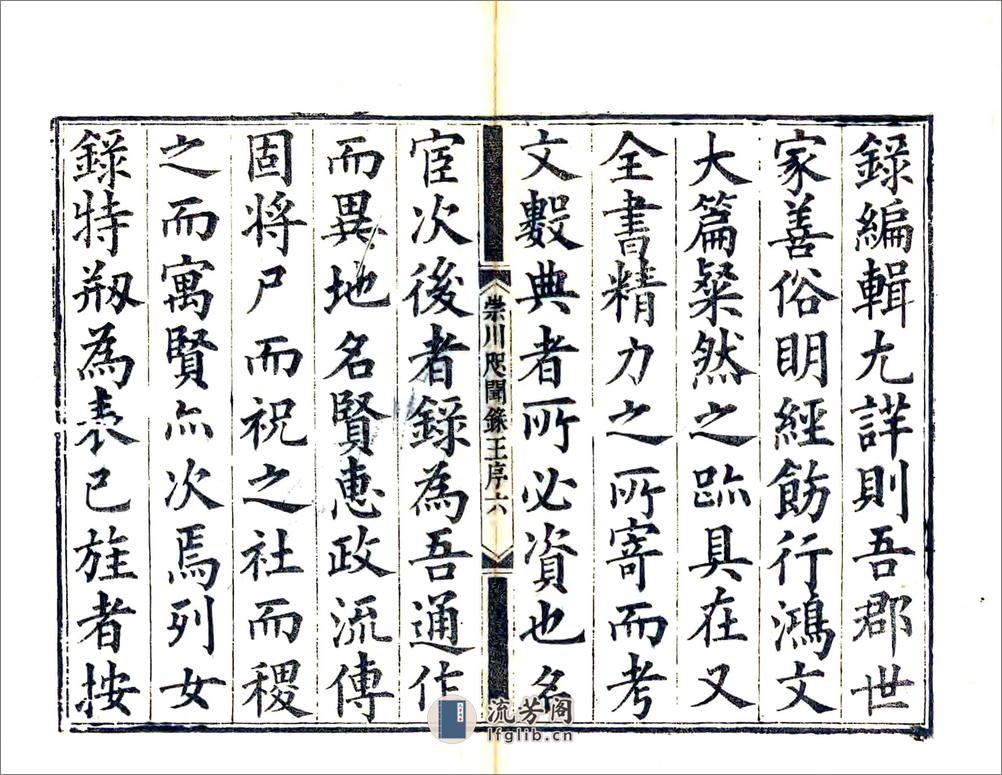 錄編輯尤詳則吾郡世
家善俗明經飭行鴻文
大篇粲然之跡具在又
全書精力之所寄而考
文數典者所必資也名
崇川咫聞錄王序六
宦次後者錄為吾通作
而異地名賢惠政流傳
固將尸而祝之社而稷
之而寓賢亦次焉列女
錄特剏為表已旌者按
流芳阁
lfglib.cn